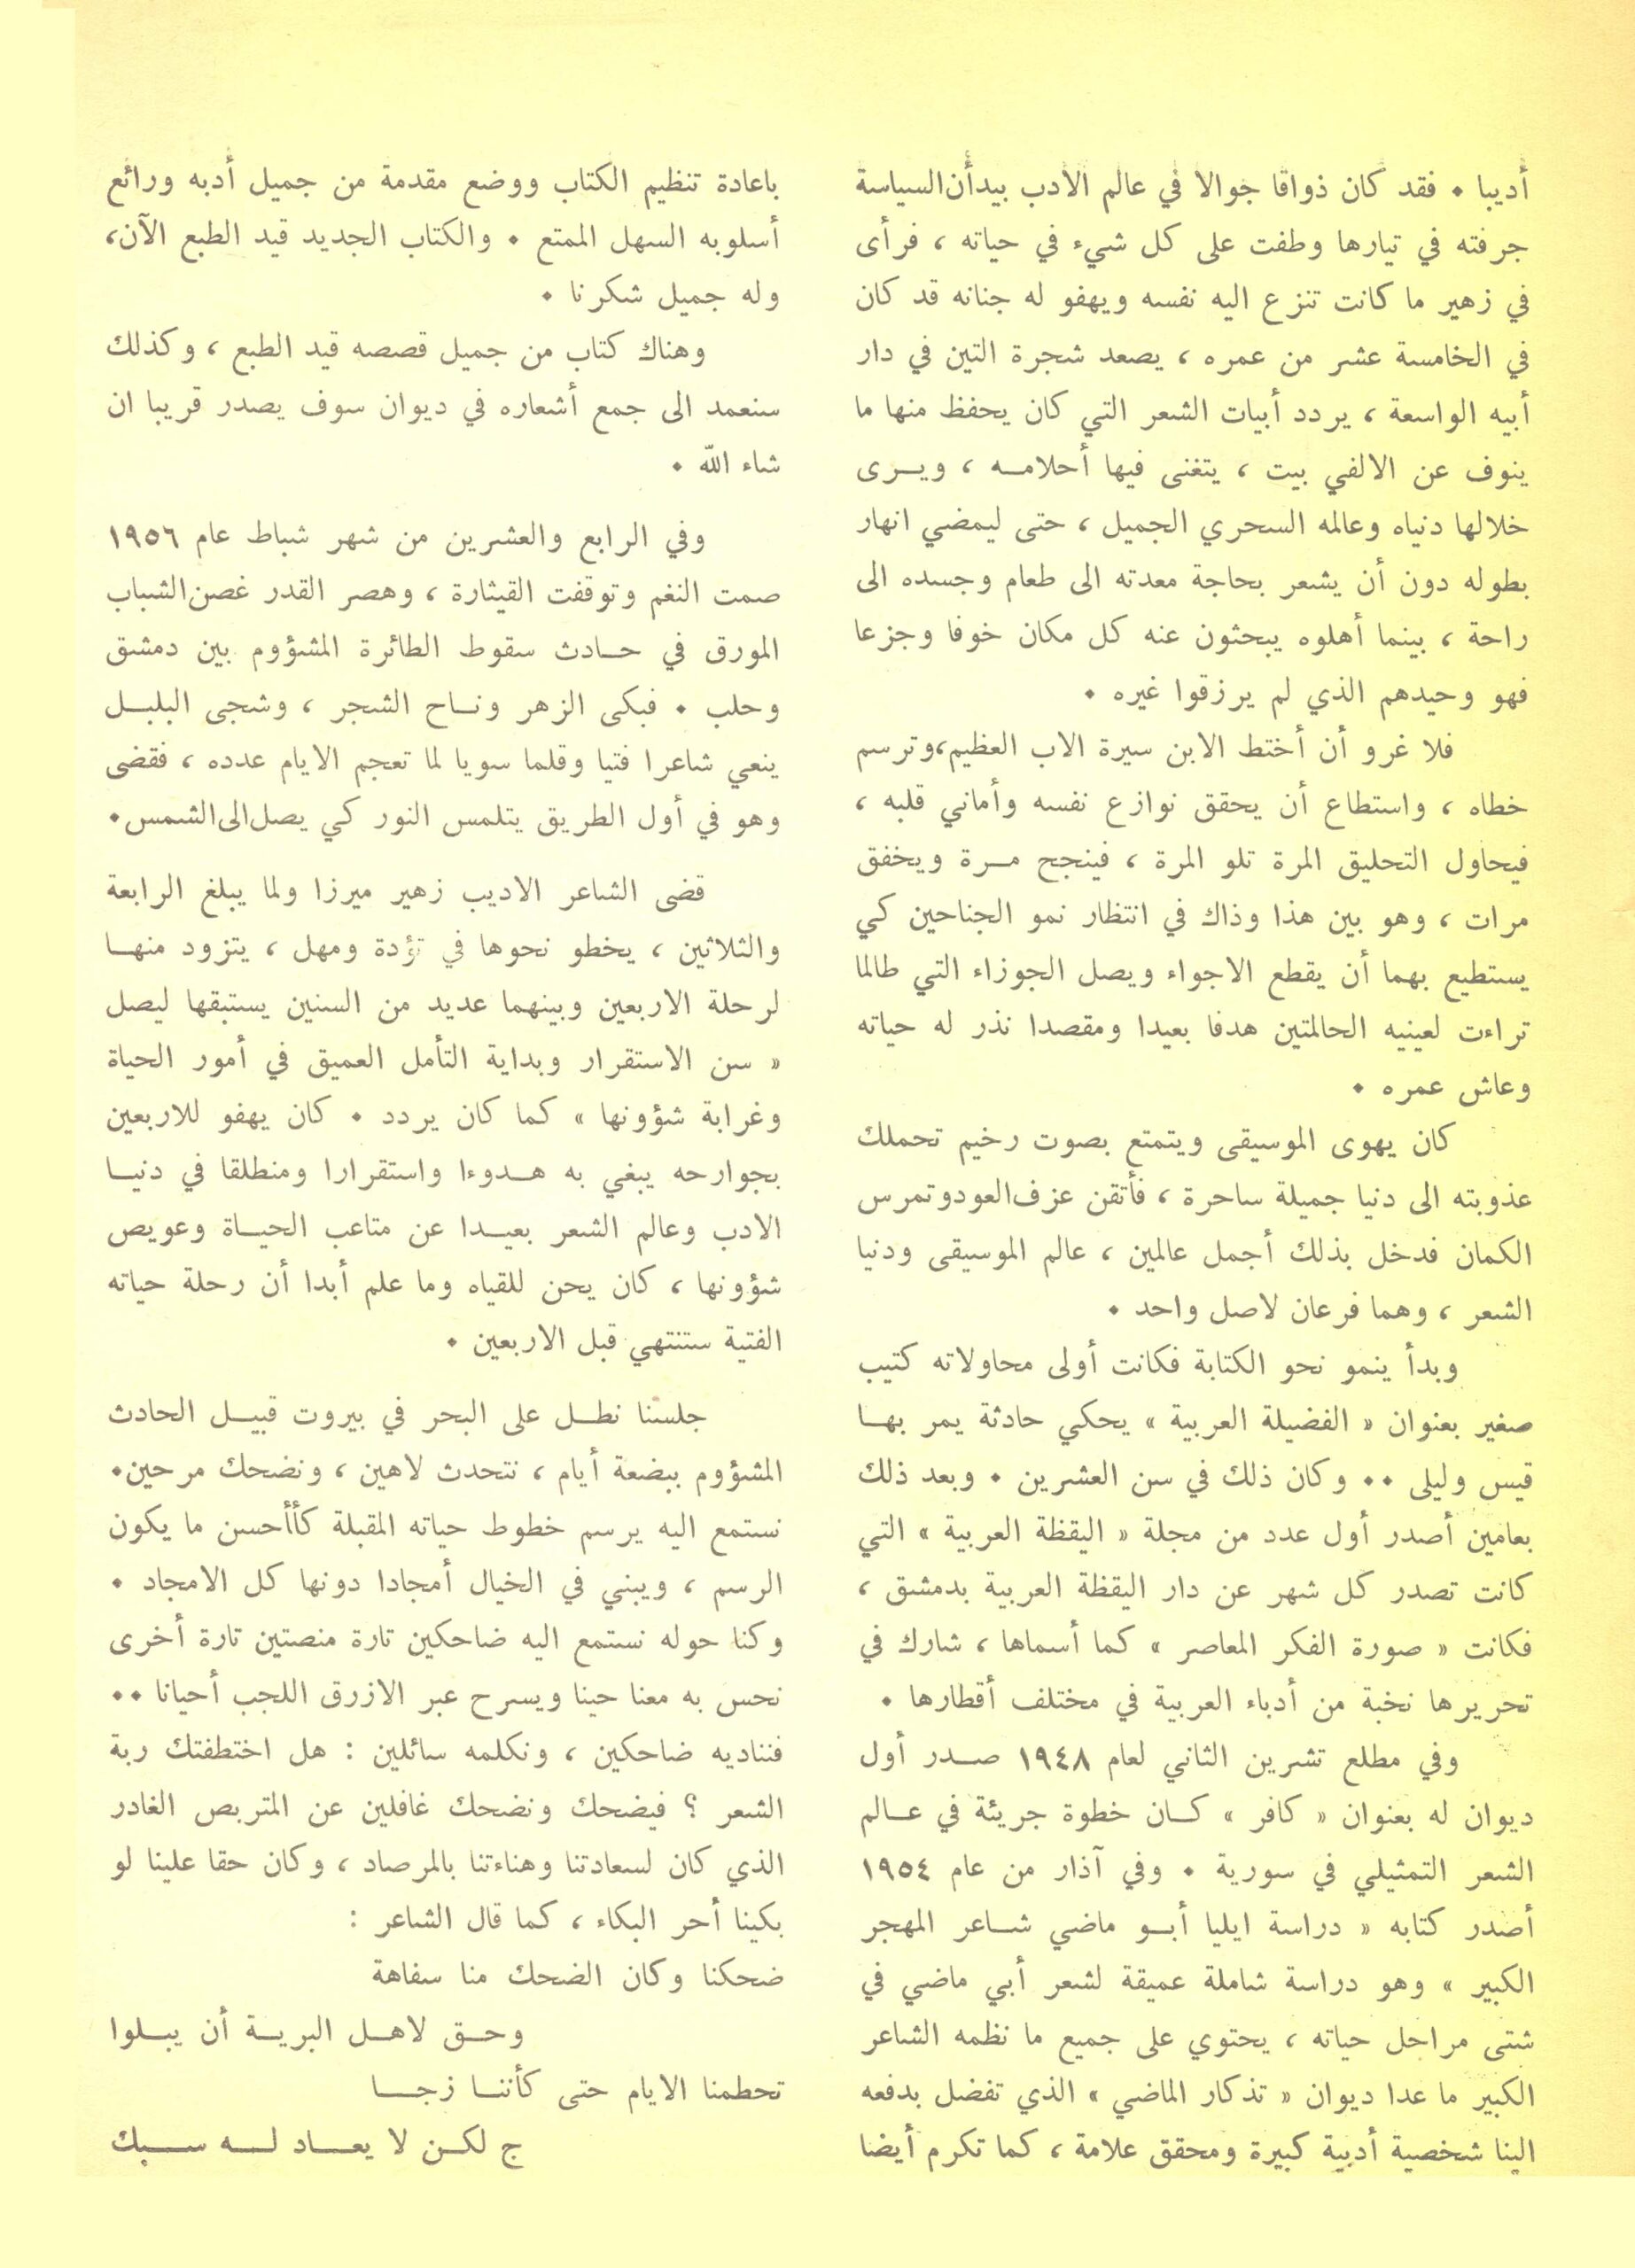 أديبا ٠ فقد كان ذواقا جوالا في عالم الادب بيدأن السياسة
جرفته في تيارها وطفت على كل شيء في حياته ، فرأى
في زهير ما كانت تنزع اليه نفسه ويهفو له جنانه قد كان
في الخامسة عشر من عمره ، يصعد شجرة التين في دار
أبيه الواسعة ، يردد أبيات الشعر التي كان يحفظ منها ما
ينوف عن الالفي بيت ، يتغنى فيها أحلامه ، ويرى
خلالها دنياه وعالمه السحري الجميل ، حتى ليمضي انهار
بطوله دون أن يشعر بحاجة معدته الى طعام وجسده الى
راحة ، بينما أهلوه يبحثون عنه كل مكان خوفا وجزعا
فهو وحيدهم الذي لم يرزقوا غيره ٠
فلا غرو أن أختط الابن سيرة الاب العظيم،وترسم
خطاه ، واستطاع أن يحقق نوازع نفسه وأماني قلبه ،
فيحاول التحليق المرة تلو المرة ، فينجح مرة ويخفق
مرات ، وهو بين هذا وذاك في انتظار نمو الجناحين كي
يستطيع بهما أن يقطع الاجواء ويصل الجوزاء التي طالما
تراءت لعينيه الحالمتين هدفا بعيدا ومقصدا نذر له حياته
وعاش عمره ٠
كان يهوى الموسيقى ويتمتع بصوت رخيم تحملك
عذوبته الى دنيا جميلة ساحرة ، فأتقن عزف العود وتمرس
الكمان فدخل بذلك أجمل عالمين ، عالم الموسيقى ودنيا
الشعر ، وهما فرعان لاصل واحد ٠
وبدأ ينمو نحو الكتابة فكانت أولى محاولاته كتيب
صغير بعنوان « الفضيلة العربية » يحكي حادثة يمر بها
قيس وليلى ٠٠ وكان ذلك في سن العشرين ٠ وبعد ذلك
بعامين أصدر أول عدد من مجلة « اليقظة العربية » التي
كانت تصدر كل شهر عن دار اليقظة العربية بدمشق ،
فكانت « صورة الفكر المعاصر » كما أسماها ، شارك في
تحريرها نخبة من أدباء العربية في مختلف أقطارها ٠
وفي مطلع تشرين الثاني لعام ١٩٤٨ صدر أول
ديوان له بعنوان « كافر » كان خطوة جريئة في عالم
الشعر التمثيلي في سورية ٠ وفي آذار من عام ١٩٥٤
أصدر كتابه « دراسة ايليا أبو ماضي شاعر المهجر
الكبير » وهو دراسة شاملة عميقة لشعر أبي ماضي في
شتى مراحل حياته ، يحتوي على جميع ما نظمه الشاعر
الكبير ما عدا ديوان « تذكار الماضي » الذي تفضل بدفعه
الينا شخصية أدبية كبيرة ومحقق علامة ، كما تكرم أيضا
باعادة تنظيم الكتاب ووضع مقدمة من جميل أدبه ورائع
أسلوبه السهل الممتع ٠ والكتاب الجديد قيد الطبع الآن،
وله جميل شكرنا ٠
وهناك كتاب من جميل قصصه قيد الطبع ، وكذلك
سنعمد الى جمع أشعاره في ديوان سوف يصدر قريبا ان
شاء الله ٠
وفي الرابع والعشرين من شهر شباط عام ١٩٥٦
صمت النغم وتوقفت القيثارة ، وهصر القدر غصن الشباب
المورق في حادث سقوط الطائرة المشؤوم بين دمشق
وحلب ٠ فبكى الزهر وناح الشجر ، وشجى البلبل
ينعي شاعرا فتيا وقلما سويا لما تعجم الايام عدده ، فقضى
وهو في أول الطريق يتلمس النور كي يصل الى الشمس٠
قضى الشاعر الاديب زهير ميرزا ولما يبلغ الرابعة
والثلاثين ، يخطو نحوها في تؤدة ومهل ، يتزود منها
لرحلة الاربعين وبينهما عديد من السنين يستبقها ليصل
« سن الاستقرار وبداية التأمل العميق في أمور الحياة
وغرابة شؤونها » كما كان يردد ٠ كان يهفو للاربعين
بجوارحه يبغي به هدوءا واستقرارا ومنطلقا في دنيا
الادب وعالم الشعر بعيدا عن متاعب الحياة وعويص
شؤونها ، كان يحن للقياه وما علم أبدا أن رحلة حياته
الفتية ستنتهي قبل الاربعين ٠
جلسنا نطل على البحر في بيروت قبيل الحادث
المشؤوم ببضعة أيام ، نتحدث لاهين ، ونضحك مرحين٠
نستمع اليه يرسم خطوط حياته المقبلة كأأحسن ما يكون
الرسم ، ويبني في الخيال أمجادا دونها كل الامجاد ٠
وكنا حوله نستمع اليه ضاحكين تارة منصتين تارة أخرى
نحس به معنا حينا ويسرح عبر الازرق اللجب أحيانا ٠٠
فنناديه ضاحكين ، ونكلمه سائلين : هل اختطفتك ربة
الشعر ؟ فيضحك ونضحك غافلين عن المتربص الغادر
الذي كان لسعادتنا وهناءتنا بالمرصاد ، وكان حقا علينا لو
بكينا أحر البكاء ، كما قال الشاعر :
ضحكنا وكان الضحك منا سفاهة
وحق لاهل البرية أن يبلوا
تحطمنا الايام حتى كأننا زجا
ج لكن لا يعاد له سبك